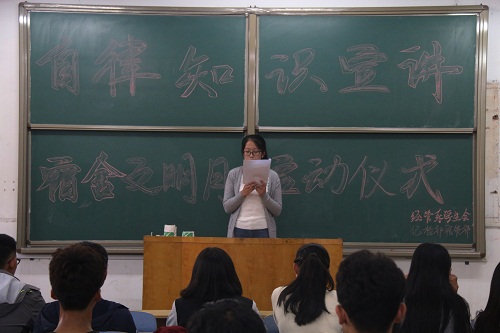 自律知识宣讲
宿舍文明月 动仪式
经管系学生会